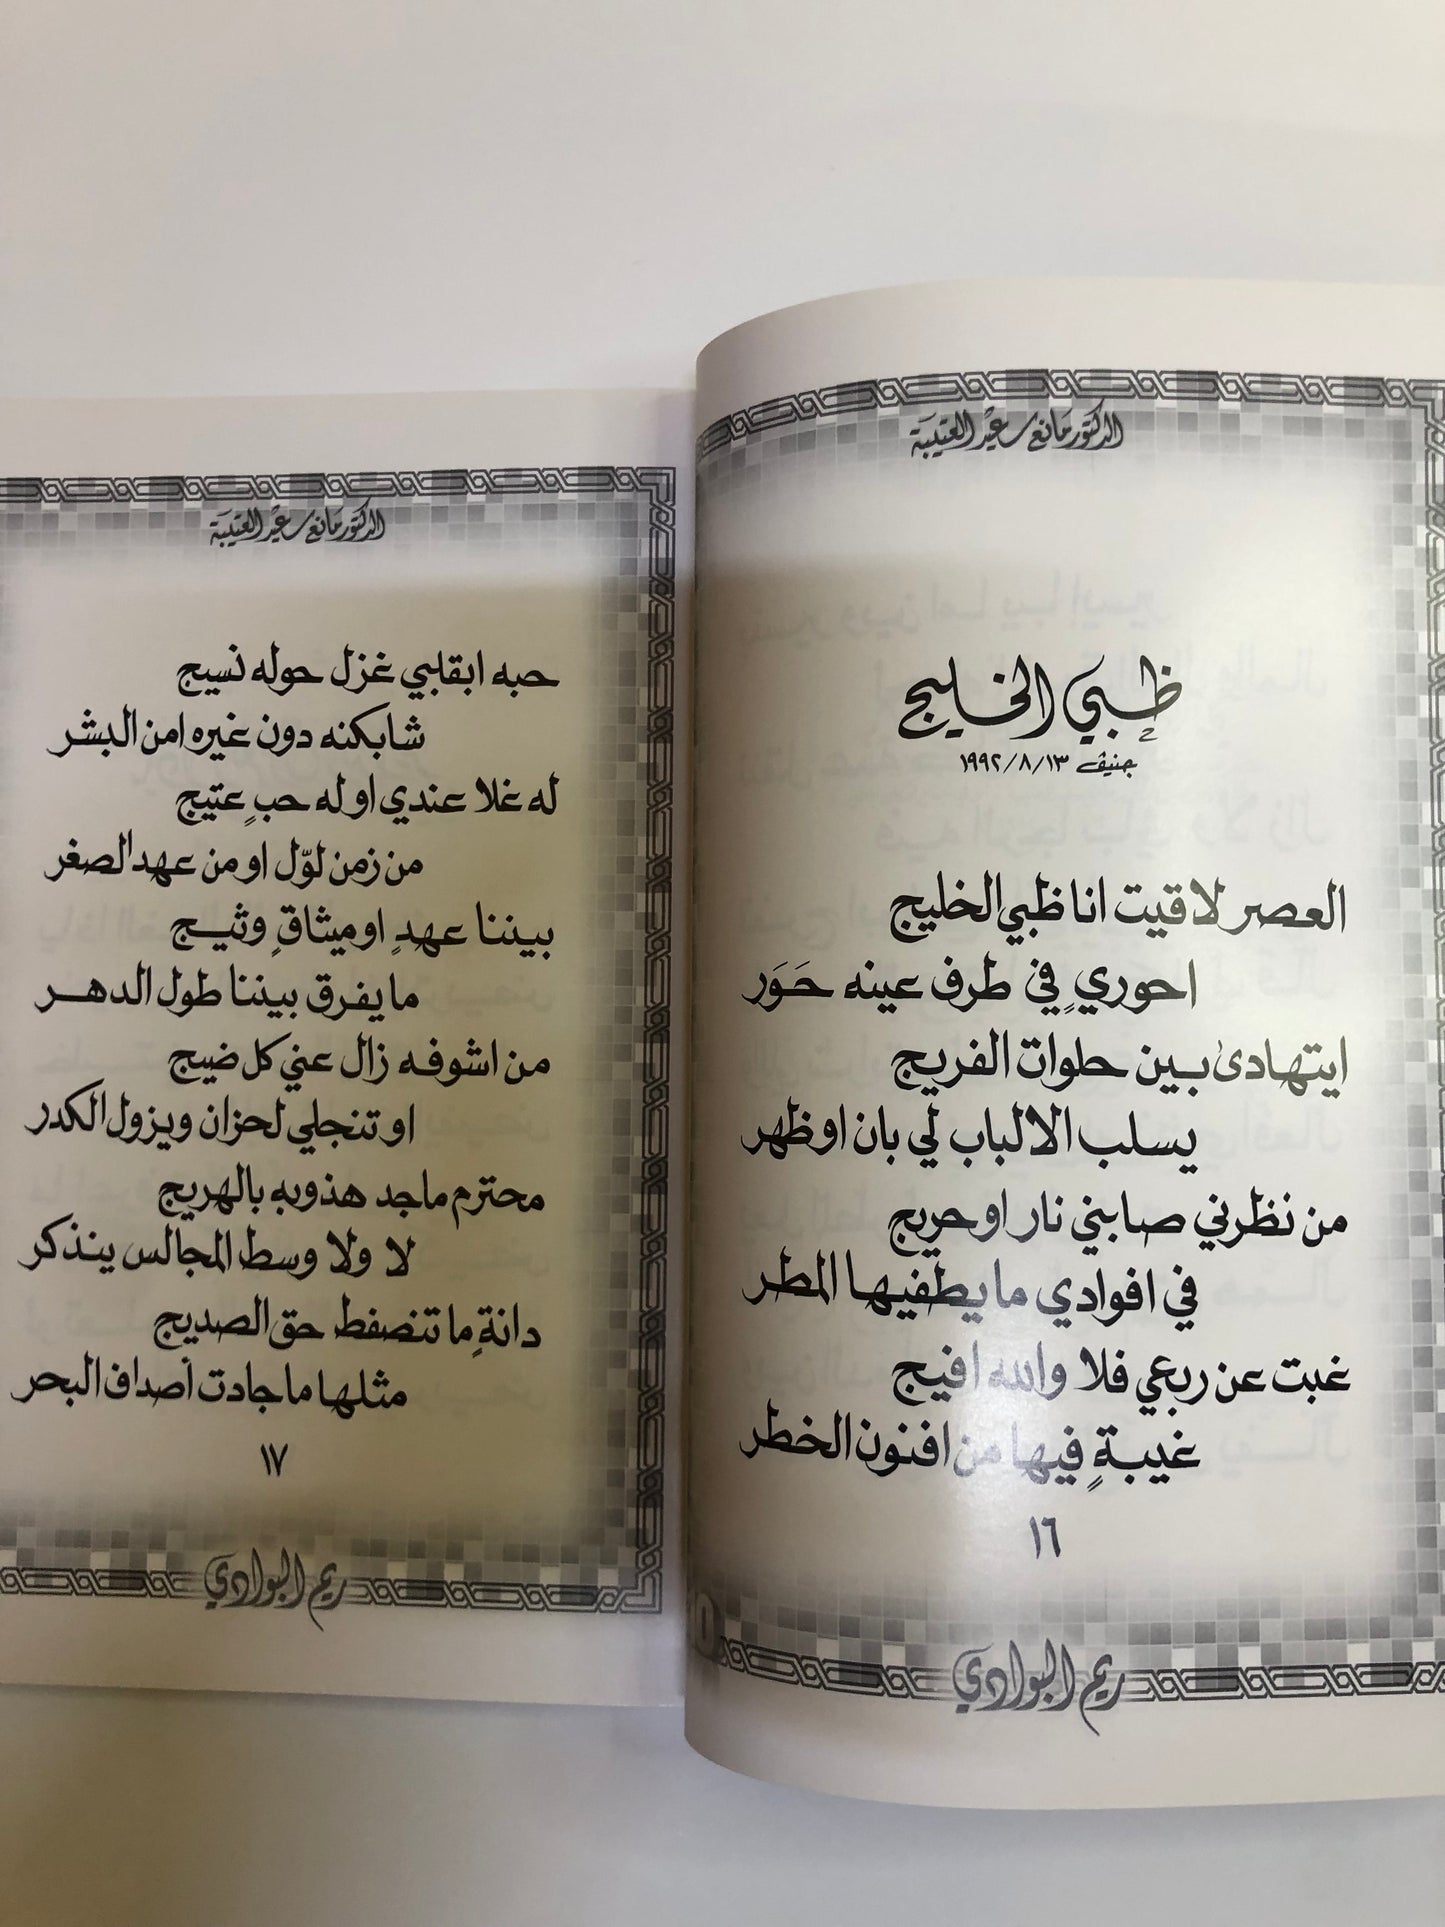 الدكتور مانع سعيد العتيبة
ظبي الخليج
جنيف ١٩٩٢/٨/١٣
العصر لاقيت انا ظبي الخليج
احوريٍ في طرف عينه حَوَر
ايتهادىٰ بين حلوات الفريج
يسلب الالباب لي بان اوظهر
من نظرني صابني نار اوحريج
في افوادي ما يطفيها المطر
غبت عن ربعي فلا والله افيج
غيبةٍ فيها من افنون الخطر
١٦
ريم البوادي
الدكتور مانع سعيد العتيبة
حبه ابقلبي غزل حوله نسيج
شابكنه دون غيره امن البشر
له غلا عندي اوله حبٍ عتيج
من زمن لوّل اومن عهد الصغر
بيننا عهدٍ اوميثاقٍ وثيج
ما يفرق بيننا طول الدهر
من اشوفه زال عني كل ضيج
اوتنجلي لحزان ويزول الكدر
محترم ماجد هذوبه بالهريج
لا ولا وسط المجالس ينذكر
دانةٍ ما تنصفط حق الصديج
مثلها ما جادت أصداف البحر
١٧
ريم البوادي